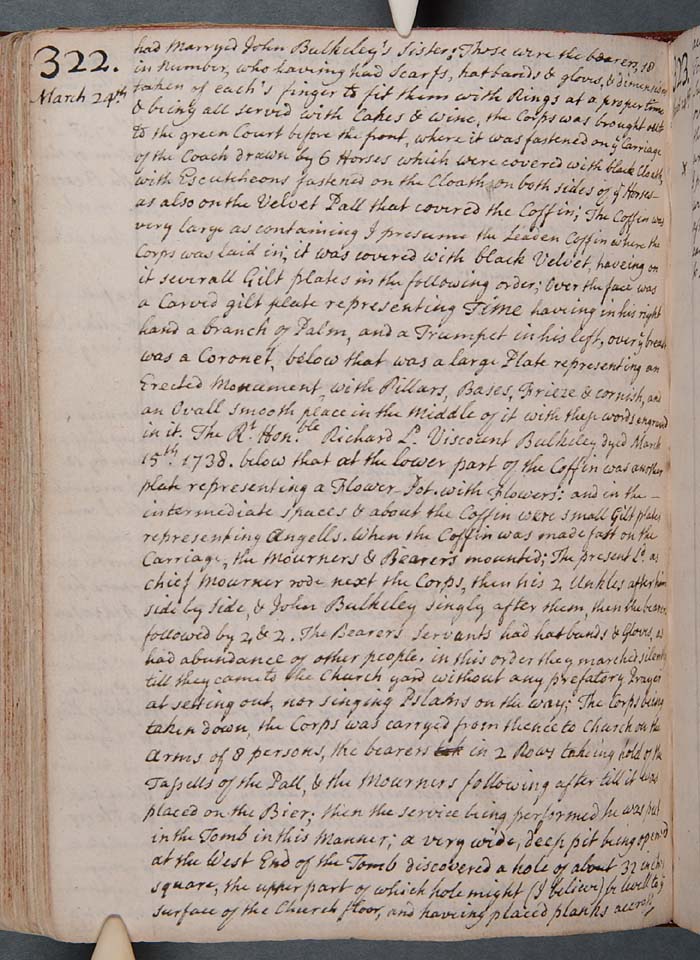 322.
March 24th
had Marryed John Bulkeley's Sister: Those were the bearers, 18
in Number, who having had Scarfs, hatbands & gloves, & dimensions
taken of each's finger to fit them with Rings at a proper time
& being all served with Cakes & wine, the Corps was brought out
to the green Court before the front, where it was fastened on ye Carriage
of the Coach drawn by 6 Horses which were covered with black Cloath,
with Escutcheons fastened on the Cloath on both sides of ye Horses
as also on the Velvet Pall that covered the Coffin; The Coffin was
very large as containing I presume the Leaden Coffin where the
Corps was laid in; it was covered with black Velvet, haveing on
it severall Gilt plates in the following order; Over the face was
a Carvid gilt plate representing Time having in his right
hand a branch of Palm, and a Trumpet in his left, over ye breast
was a Coronet, below that was a large Plate representing an
Erected Monument, with Pillars, Bases, Frieze & cornish, and
an Ovall smooth peace in the middle of it with these words engravd
in it. The Rt. Hon.ble Richard Ld. Viscount Bulkeley dyed March
15th. 1738. below that at the lower part of the Coffin was another
plate representing a Flower-Pot with Flowers: and in the –
intermediate spaces & about the Coffin were small Gilt plates
representing Angells. When the Coffin was made fast on the
Carriage, the Mourners & Bearers mounted; The present Ld. as
chief Mourner rode next the Corps, then his 2 Unkles after him
side by side, & John Bulkeley singly after them, then the bearers
followed by 2 & 2. The Bearers Servants had hatbands & Gloves, as
had abundance of other people. in this order they marched silently
till they came to the Church yard without any prefatory Prayer
at setting out, nor singing Pslams on the way; The Corps being
taken down, the Corps was carryed from thence to Church on the
Arms of 8 persons, the bearers in 2 Rows takeing hold of the
Tassells of the Pall, & the Mourners following after till it was
placed on the Bier; then the service being performed he was put
in the Tomb in this Manner; a very wide, deep pit being opened
at the West End of the Tomb discovered a hole of about 32 inches
square, the upper part of which hole might (I believe) be levell to ye
surface of the Church floor, and haveing placed planks across